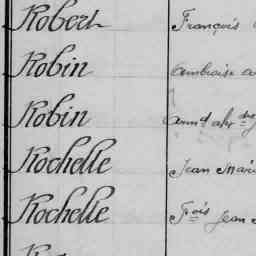 Robert François
Robin Ambroise
Robin
Rochelle Jean Marie
Rochelle Fois Jean